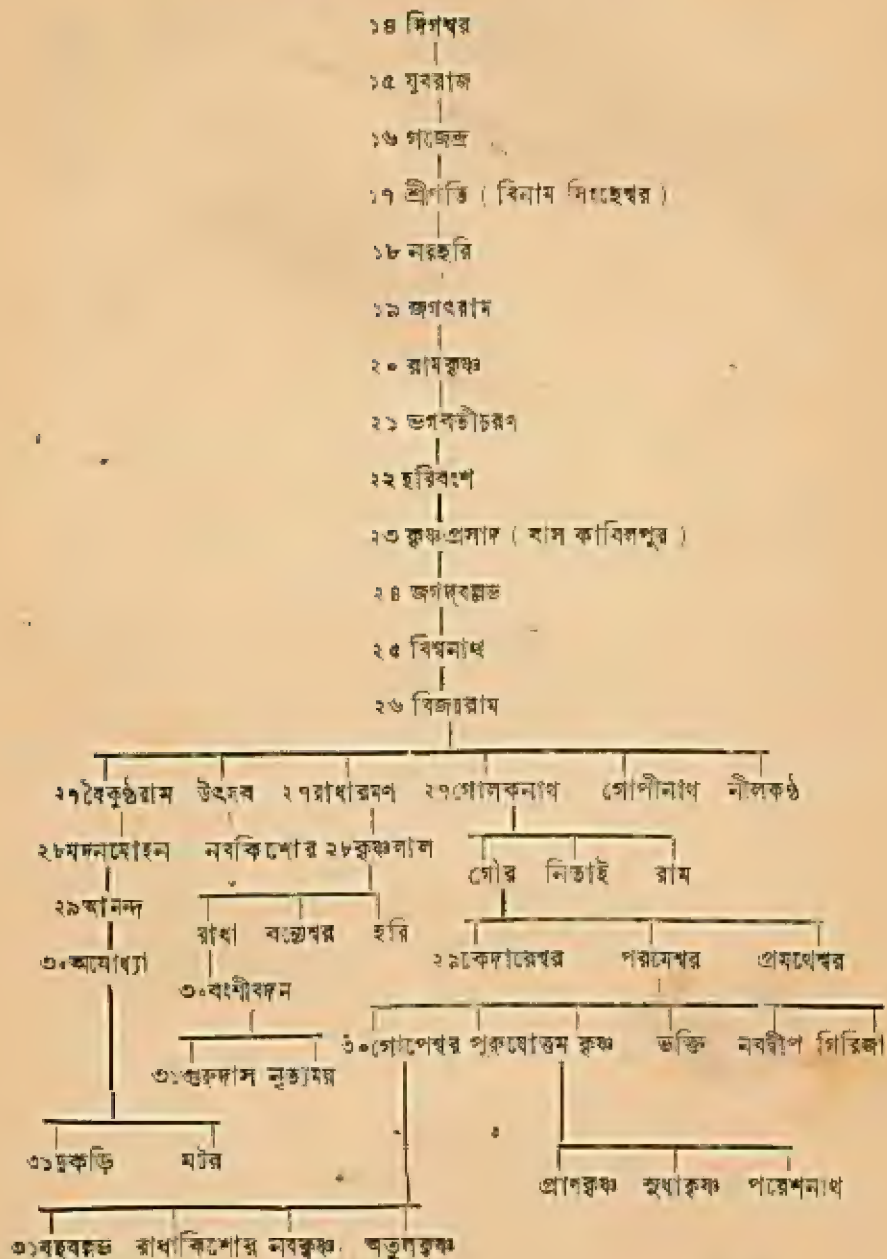 ১৪ দিগম্বর
১৫ যুবরাজ
১৬ গজেন্দ্র
১৭ শ্রীপতি ( বিনাম সিংহেশ্বর )
১৮ নরহরি
১৯ জগৎরাম
২০ রামকৃষ্ণ
২১ ভগবতীচরণ
২২ হরিবংশ
২৩ কৃষ্ণপ্রসাদ ( বাস কাবিলপুর )
২৪ জগদ্‌বল্লভ
২৫ বিশ্বনাথ
২৬ বিজয়রাম
২৭বৈকুণ্ঠরাম উৎসব ২৭রাধারমণ ২৭গোলকনাথ গোপীনাথ নীলকণ্ঠ
২৮মদনমোহন নবকিশোর ২৮কৃষ্ণলাল
গৌর নিতাই রাম
২৯আনন্দ
রাধা বক্রেশ্বর হরি
২৯কেদারেশ্বর পরমেশ্বর প্রমথেশ্বর
৩০অযোধ্যা
৩০বংশীবদন
৩০গোপেশ্বর পুরুষোত্তম কৃষ্ণ ভক্তি নবদ্বীপ গিরিজা
৩১গুরুদাস নৃত্যময়
৩১দুকড়ি মটর
প্রাণকৃষ্ণ সুধাকৃষ্ণ পরেশনাথ
৩১বহুবল্লভ রাধাকিশোর নবকৃষ্ণ অতুলকৃষ্ণ